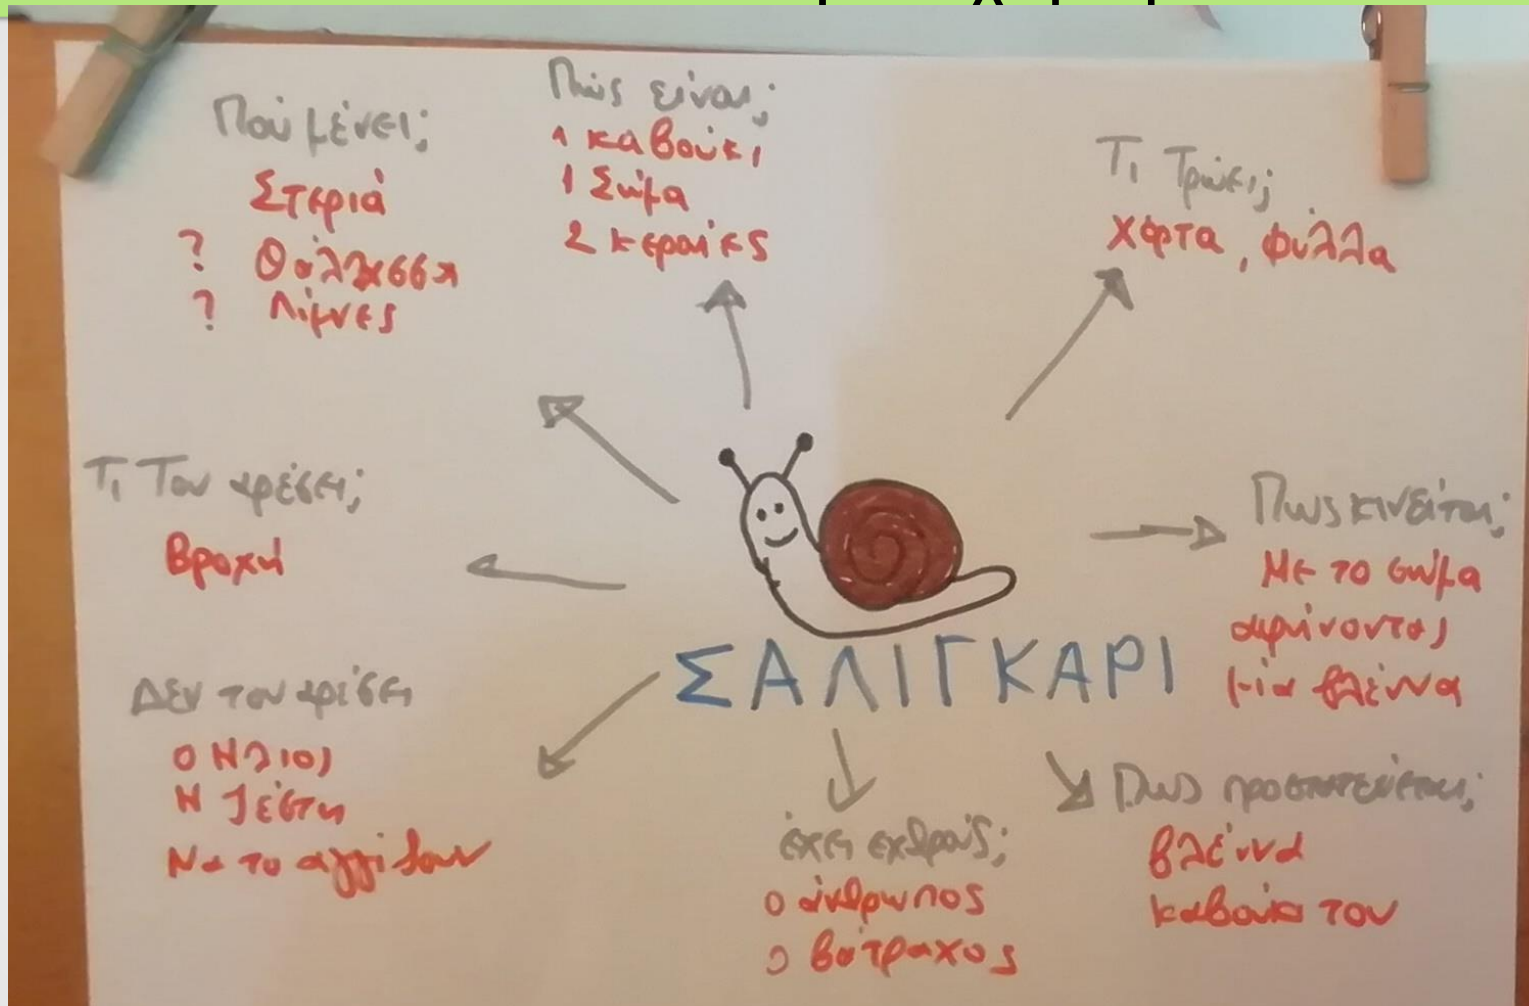 Πού μένει;
Στεριά
? Θάλασσα
? Λίμνες
Πώς είναι;
1 καβούκι
1 Σώμα
2 κεραίες
Τι Τρώει;
χόρτα, φύλλα
Τι Του αρέσει;
Βροχή
Πως κινείται;
Με το σώμα
αφήνοντας
μία βλέννα
ΣΑΛΙΓΚΑΡΙ
Δεν του αρέσει
Ο Ήλιος
Η Ζέστη
Να το αγγίζουν
έχει εχθρούς;
ο άνθρωπος
ο βάτραχος
Πως προστατεύεται;
βλέννα
καβούκι του